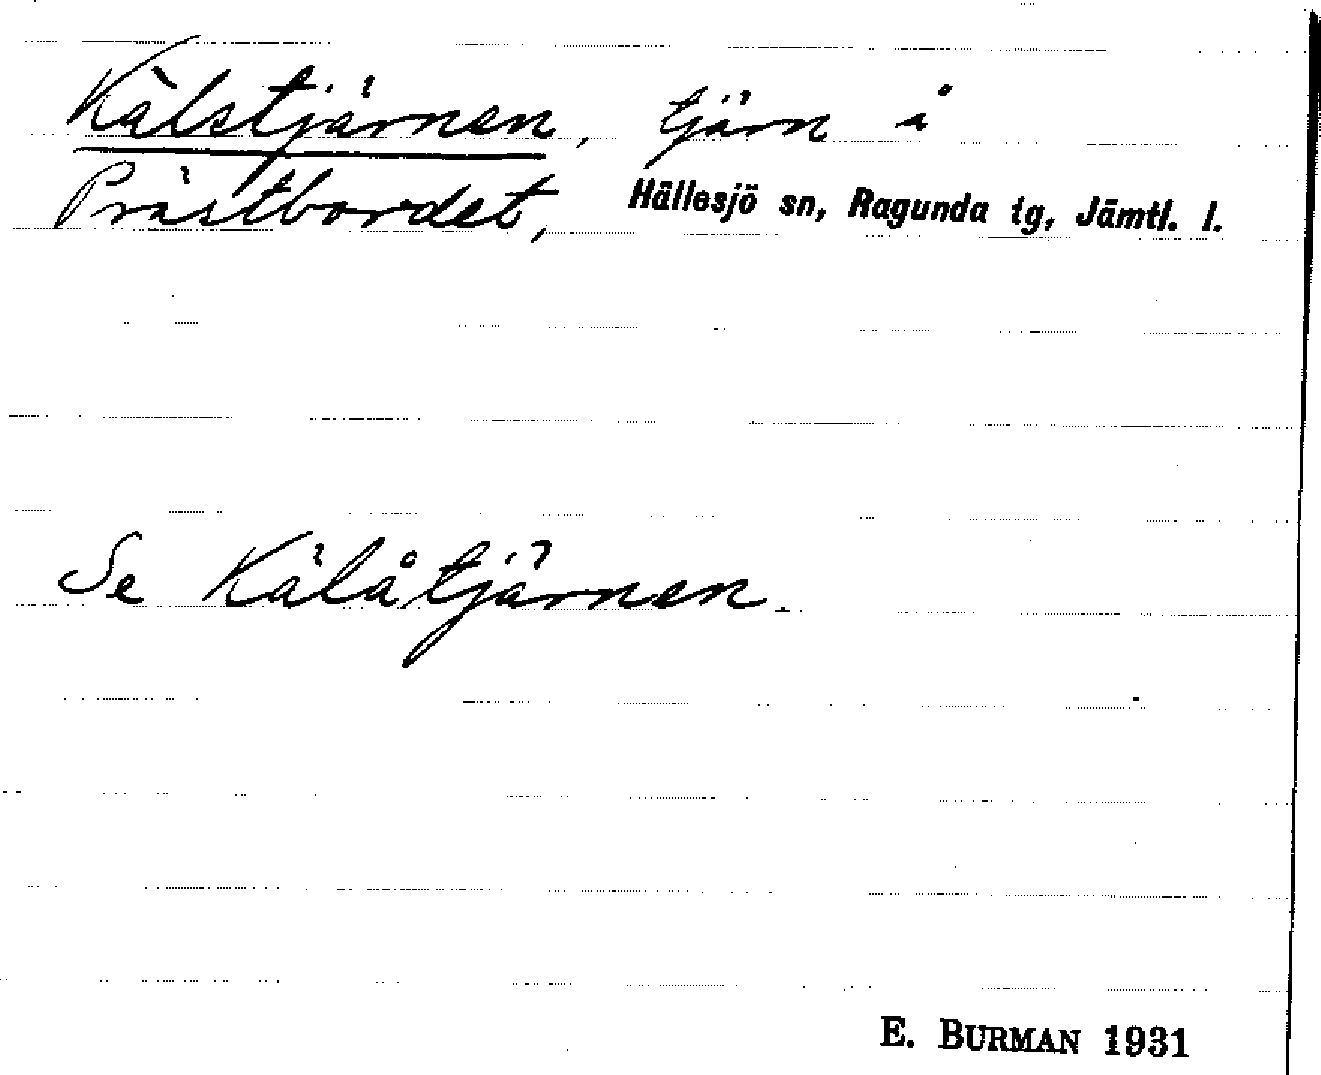 Kälstjärnen, tjärn å
Prästbordet, Hällesjö sn, Ragunda tg, Jämtl. l.
Se Kälåtjärnen.
E. BURMAN 1931